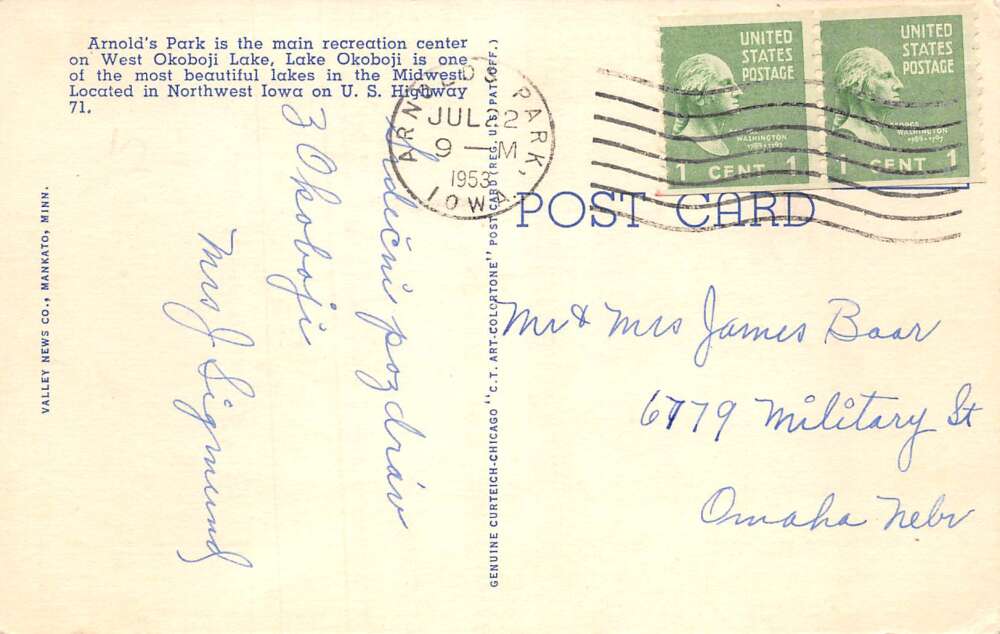 Arnold's Park is the main recreation center
on West Okoboji Lake, Lake Okoboji is one
of the most beautiful lakes in the Midwest.
Located in Northwest Iowa on U. S. Highway
71.
ARNOLDS PARK,
JUL 22
9 — M
1953
IOWA
UNITED
STATES
POSTAGE
GEORGE
WASHINGTON
1789-1797
1 CENT 1
UNITED
STATES
POSTAGE
GEORGE
WASHINGTON
1789-1797
1 CENT 1
POST CARD
Srdečni pozdráv
3 Okoboji
Mrs J Sigmund
Mr & Mrs James Baar
6779 Military St
Omaha Nebr
VALLEY NEWS CO., MANKATO, MINN.
GENUINE CURTEICH-CHICAGO "C.T. ART-COLORTONE" POST CARD (REG. U.S. PAT. OFF.)